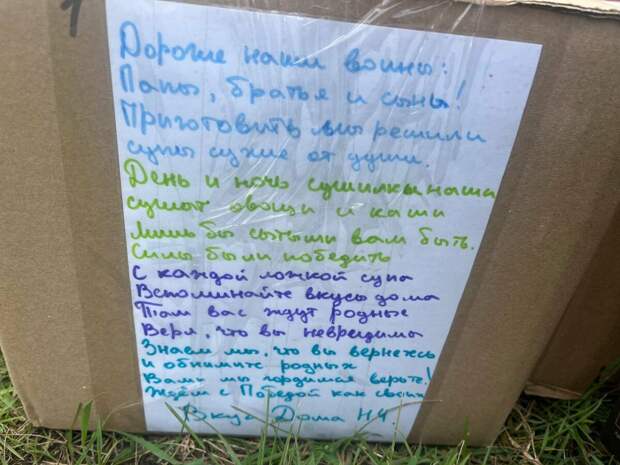 1
Дорогие наши воины:
Папы, братья и сыны!
Приготовить мы решили
супы сухие от души.
День и ночь сушилки наши
сушат овощи и каши
Лишь бы сытыми вам быть.
Силы были победить
С каждой ложкой супа
Вспоминайте вкусы дома
Там вас ждут родные
Веря, что вы невредимы
Знаем мы, что вы вернетесь
и обнимите родных
Вами мы гордимся верьте!
Ждём с Победой как своих
Вкус Дома НЧ